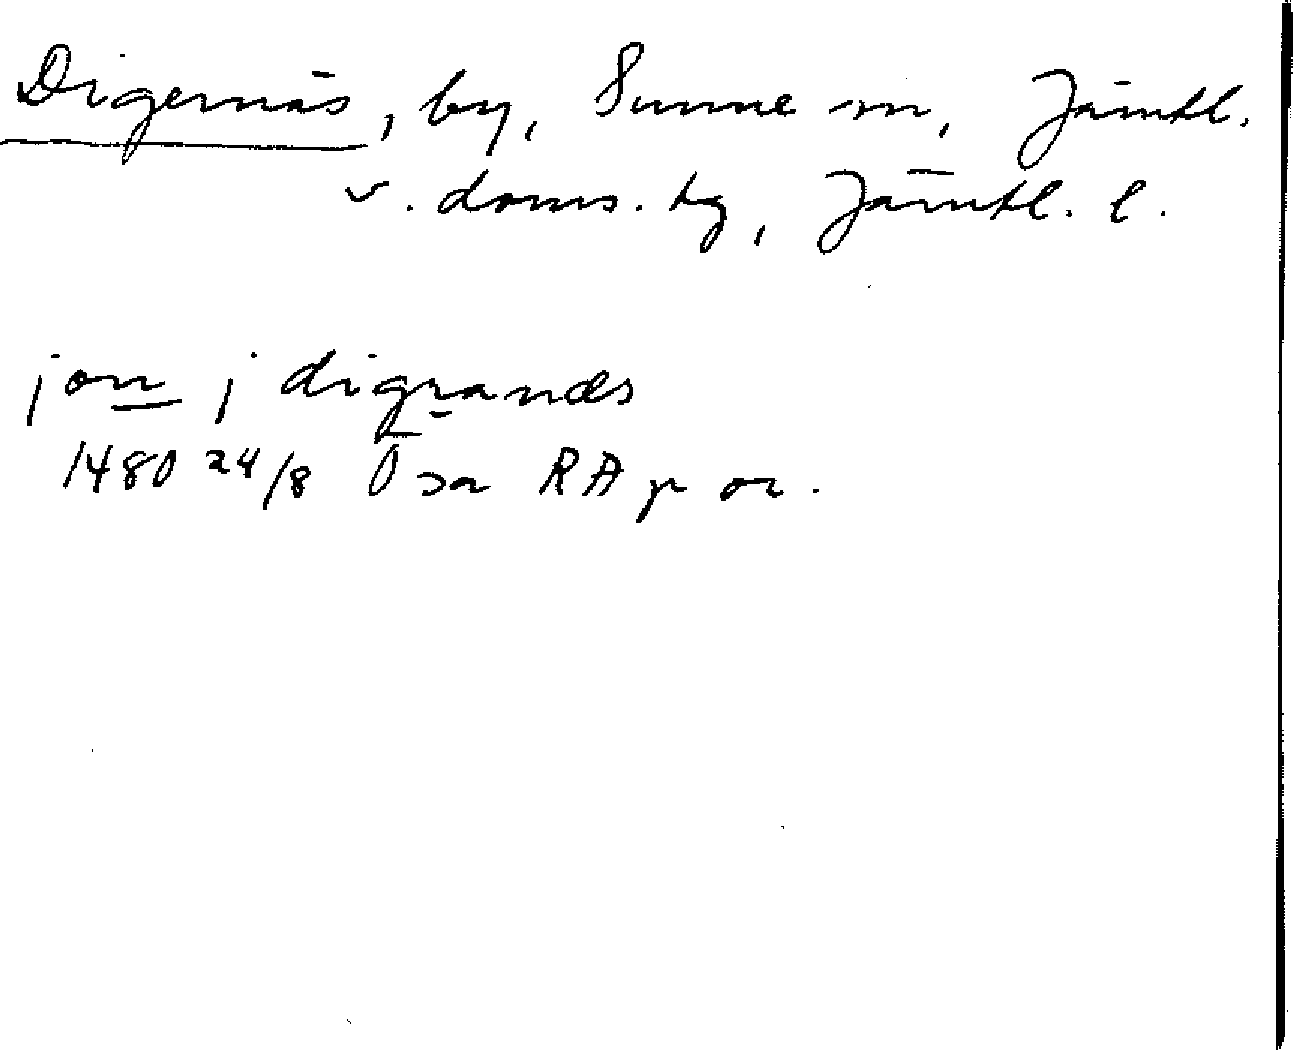 Digernäs, by, Sunne sn, Jämtl.
v. doms. tg, Jämtl. l.
jon j digranæs
1480 24/8 Ösa RAp or.